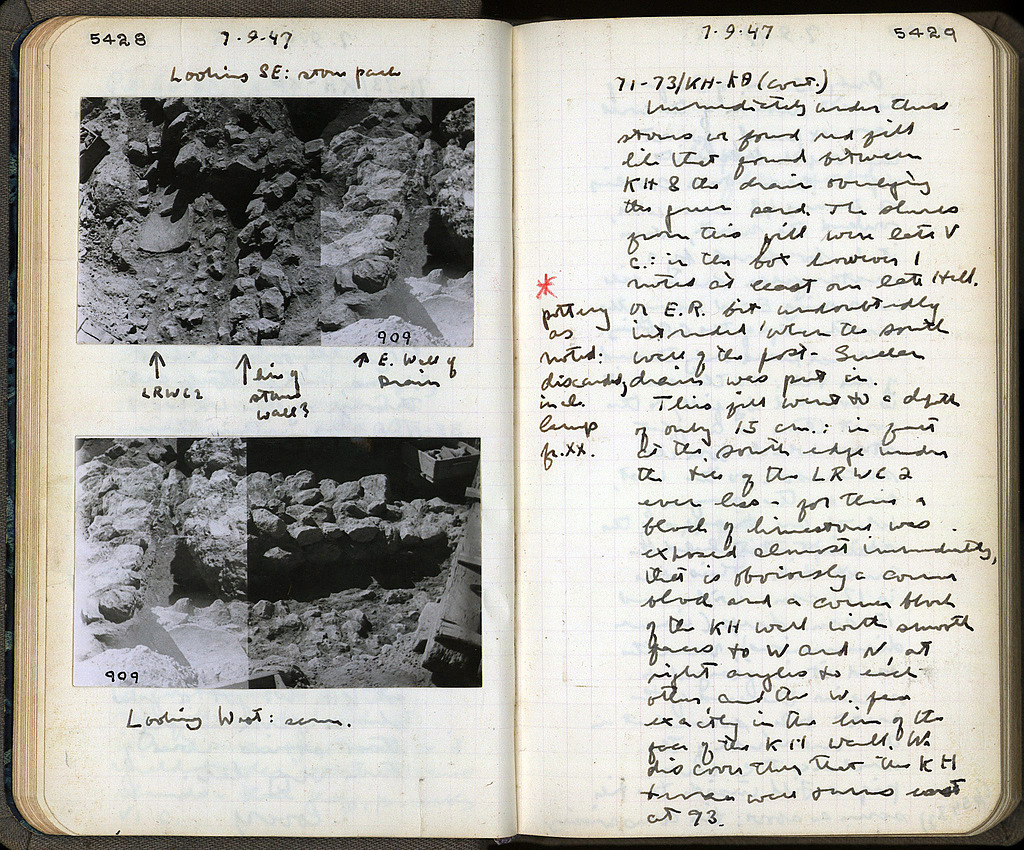 5428
7-9-47
Looking SE: stone pack
909
LRWC2
line of
stone
wall?
E. Wall of
Drain
909
Looking West: same.
7-9-47
5429
71-73/KH-KΘ (cont.)
Immediately under these
stones we found red fill
like that found between
KH & the drain overlying
the green sand. The sherds
from this fill were late V
c.: in the box however I
noted at least one late Hell.
or E.R. bit undoubtedly
intruded when the south
wall of the post-Sullan
drain was put in.
*
pottery
as
noted:
discarded,
incl.
lamp
p. xx.
This fill went to a depth
of only 15 cm.: in fact
at the south edge under
the toe of the LRWC2
even less - for there a
block of limestone was
exposed almost immediately,
that is obviously a corner
block and a corner block
of the KH wall with smooth
faces to W and N, at
right angles to each
other, and the W. face
exactly in the line of the
face of the KH wall. We
discover thus that the KH
turns east
at 73.